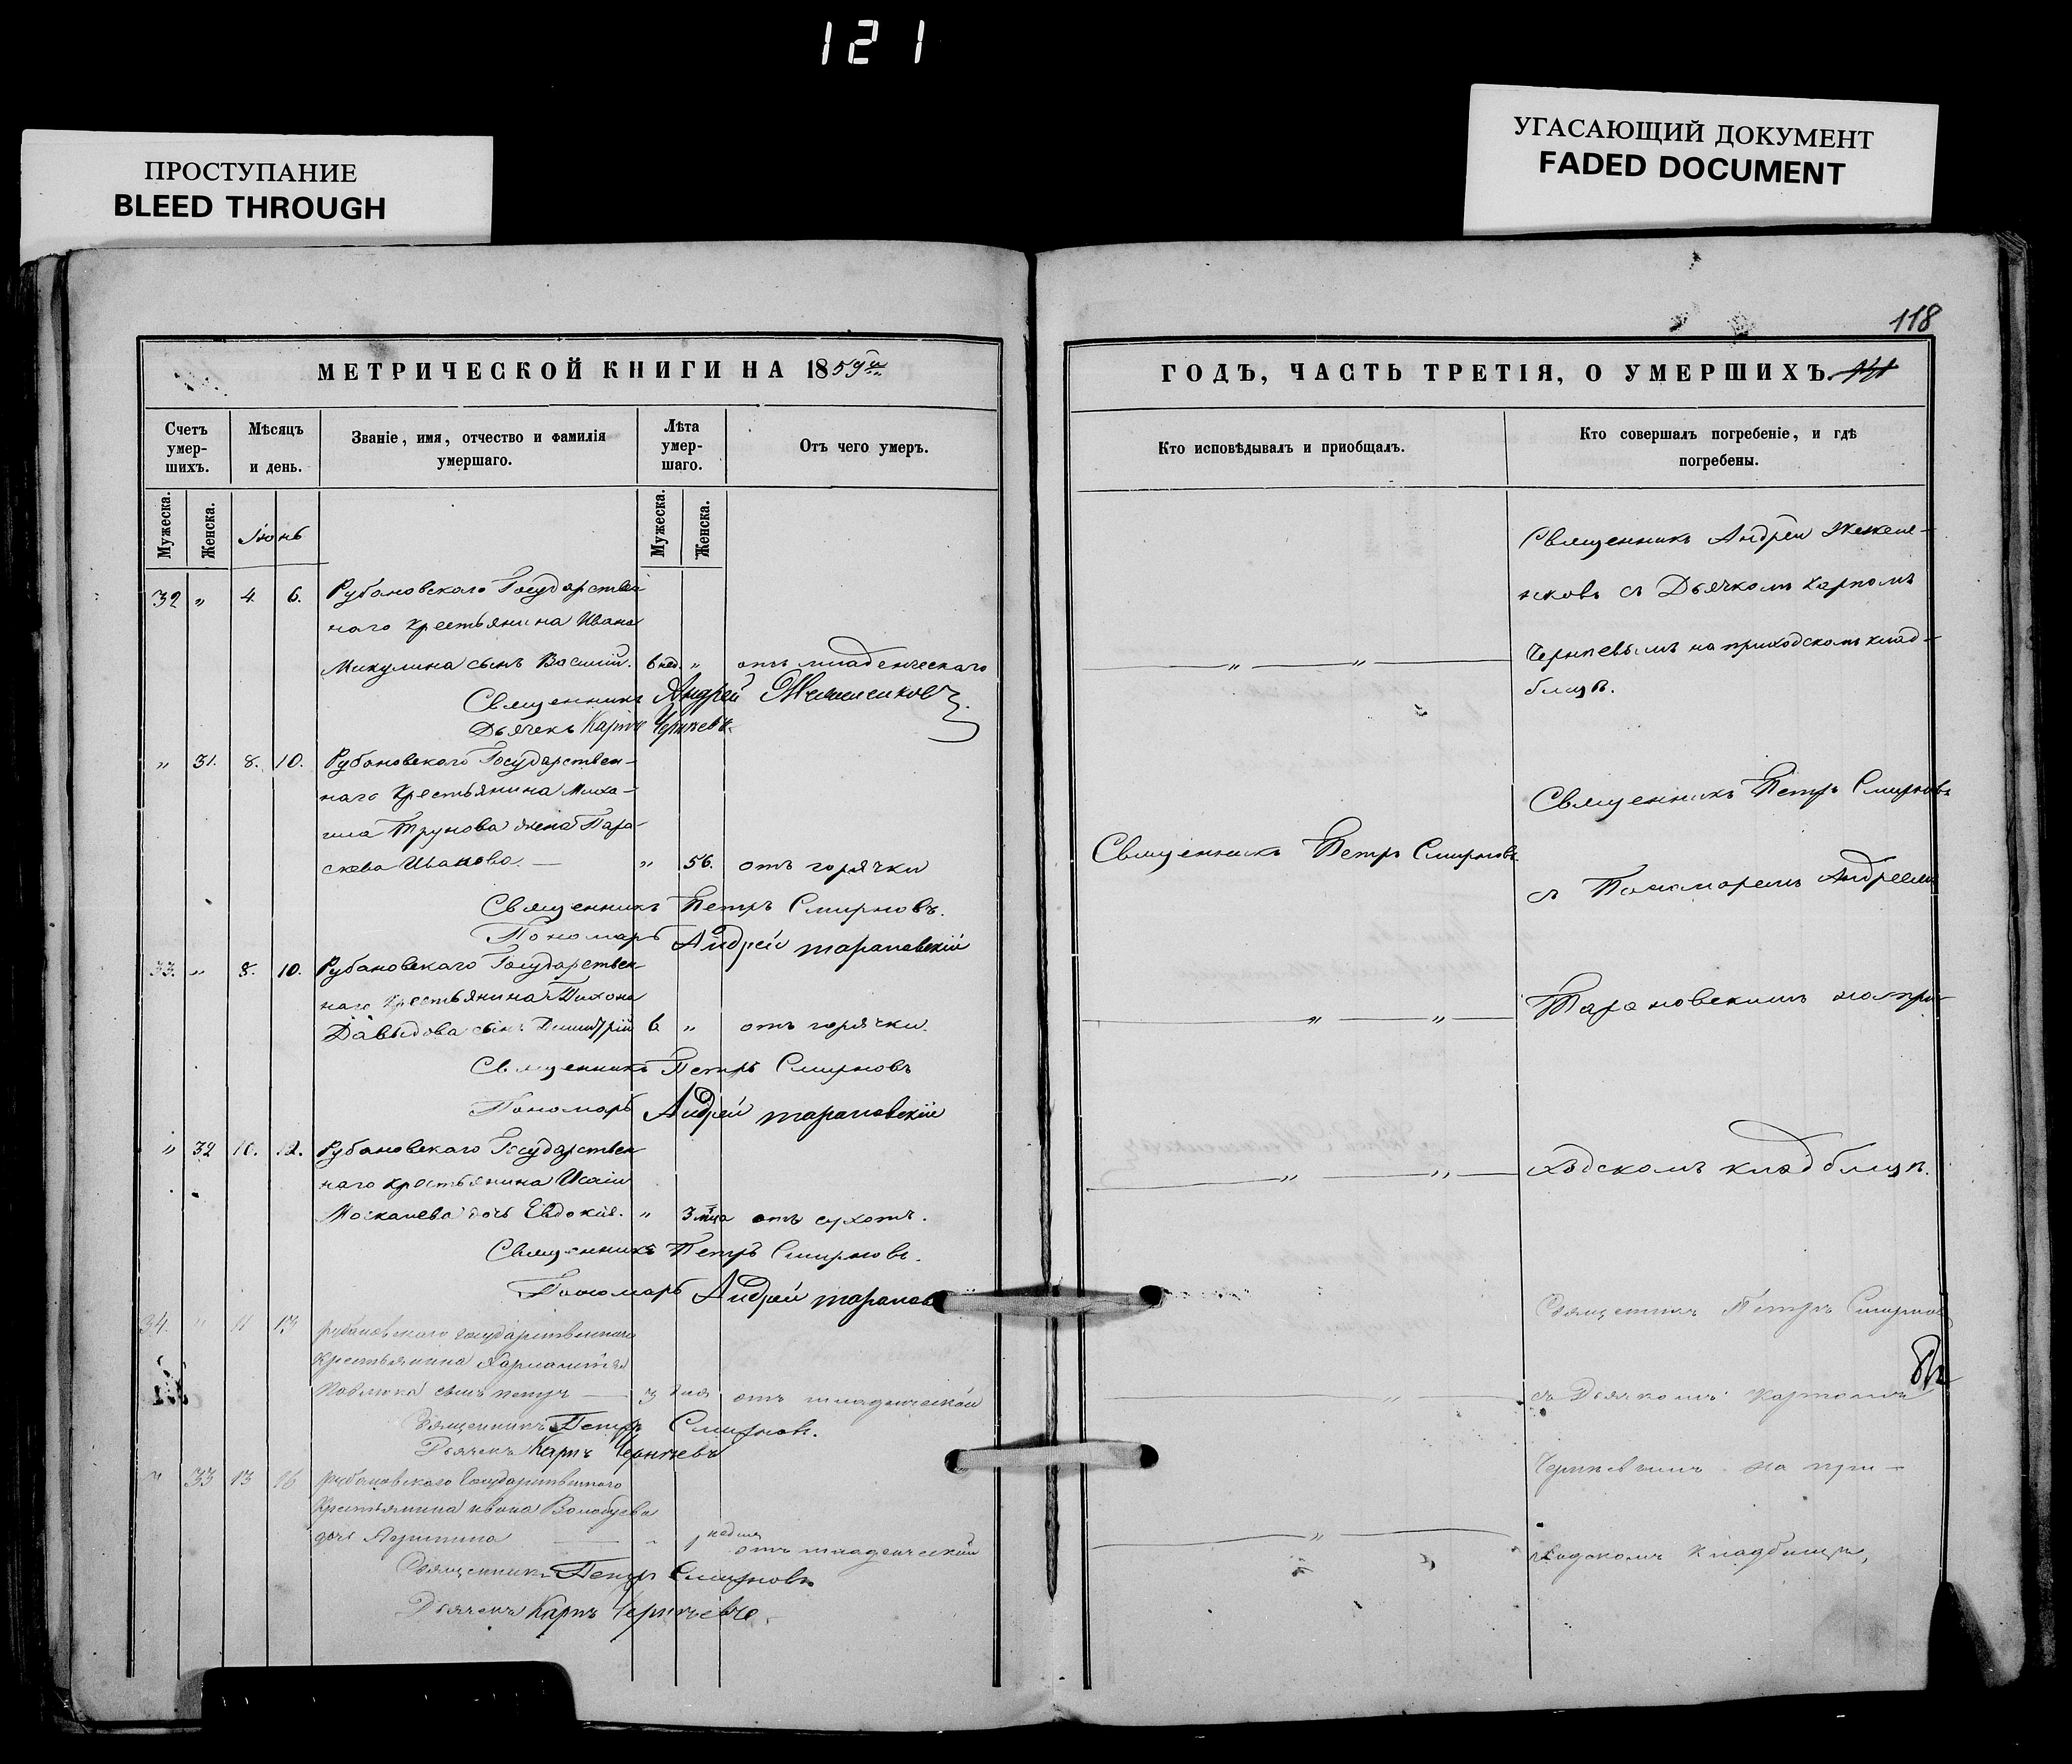 121
ПРОСТУПАНИЕ
BLEED THROUGH
УГАСАЮЩИЙ ДОКУМЕНТ
FADED DOCUMENT
118
МЕТРИЧЕСКОЙ КНИГИ НА 1859й
Счетъ умер-шихъ.
Мѣсяцъ и день.
Званіе, имя, отчество и фамилія умершаго.
Лѣта умер-шаго.
Отъ чего умеръ.
Мужеска.
Женска.
Іюнь
Мужеска.
Женска.
32 " 4. 6. Рубановскаго Государствен-
наго Крестьянина Ивана
Микулина сынъ Василій. 6 нед. " отъ младенческаго
Священникъ Андрей
Дьячекъ Карпъ Чернневъ.
" 31. 8. 10. Рубановскаго Государствен-
наго Крестьянина Миха-
ила Трунова жена Пара-
скева Иванова. — " 56. отъ горячки
Священникъ Петръ Смирновъ.
Пономарь Андрей Тарановскій
33. " 8. 10. Рубановскаго Государствен-
наго Крестьянина Тихона
Давыдова сынъ Димитрій 6 " отъ горячки.
Священникъ Петръ Смирновъ
Пономарь Андрей Тарановскій
" 32 10. 12. Рубановскаго Государствен
наго крестьянина Исаіи
Москалева дочь Евдокія. " 3 мца отъ сухотъ.
Священникъ Петръ Смирновъ.
Пономарь Андрей Таранов
34. " 11 13 Рубановскаго государственнаго
Крестьянина
сынъ петръ — 3 дня отъ младенческой
Священникъ Петръ Смирновъ.
Дьячекъ Карпъ
" 33 13 16 Рубановскаго Государственнаго
Крестьянина ивана Волобуева
дочь — " 1 недѣля отъ младенческой
Священникъ Петръ Смирновъ
Дьячекъ Карпъ
ГОДЪ, ЧАСТЬ ТРЕТІЯ, О УМЕРШИХЪ.
Кто исповѣдывалъ и приобщалъ.
Кто совершалъ погребеніе, и гдѣ погребены.
Священникъ Андрей
съ Дьячкомъ Карпомъ
на приходскомъ клад-
бищѣ.
Священникъ Петръ Смирновъ
Священникъ Петръ Смирновъ
съ Пономаремъ Андреемъ
Тарановскимъ на при-
ходскомъ кладбищѣ.
Священникъ Петръ Смирнов
съ Дьячкомъ Карпомъ
на при-
ходскомъ кладбищѣ,